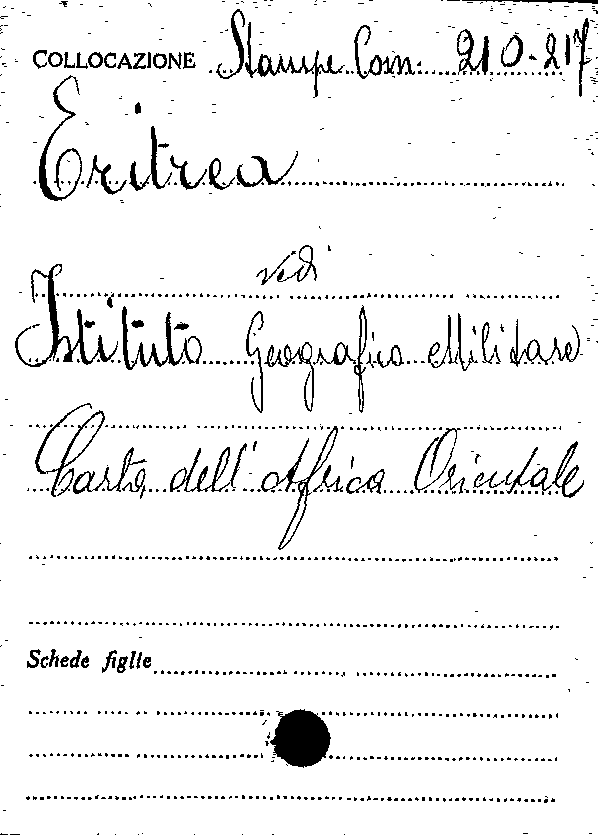 COLLOCAZIONE Stampe Com. 210-217
Eritrea
vedi
Istituto Geografico Militare
Carta dell'Africa Orientale
Schede figlie